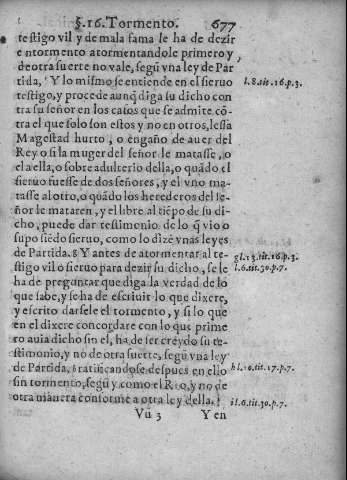 §.16.Tormento. 677
testigo vil y de mala fama le ha de dezir
en tormento atormentandole primero y,
de otra suerte no vale, segũ vna ley de Par
tida, f Y lo mismo se entiende en el sieruo
f l.8.tit.16.p.3.
testigo, y procede aunq̃ diga su dicho con
tra su señor en los casos que se admite cõ-
tra el que solo son estos y no en otros, lessa
Magestad hurto, o engaño de auer del
Rey o si la muger del señor le matasse, o
el a ella, o sobre adulterio della, o quãdo el
sieruo fuesse de dos señores, y el vno ma-
tasse al otro, o quãdo los herederos del se-
ñor le mataren, y el libre al tiẽpo de su di-
cho, puede dar testimonio de lo q̃ vio o
supo siẽdo sieruo, como lo dizẽ vnas leyes
de Partida. g Y antes de atormentar al te-
g l.13.tit.16.p.3.
stigo vil o sieruo para dezir su dicho, se le
l.6.tit.30.p.7.
ha de preguntar que diga la verdad de lo
que sabe, y se ha de escriuir lo que dixere,
y escrito darsele el tormento, y si lo que
en el dixere concordare con lo que prime
ro auia dicho sin el, ha de ser creydo su te-
stimonio, y no de otra suerte, segũ vna ley
de Partida, h ratificandose despues en ello
h l.10.tit.17.p.7.
sin tormento, segũ y como el Reo, y no de
otra manera conforme a otra ley della. i
i l.6.tit.30.p.7.
Vu 3 Y en